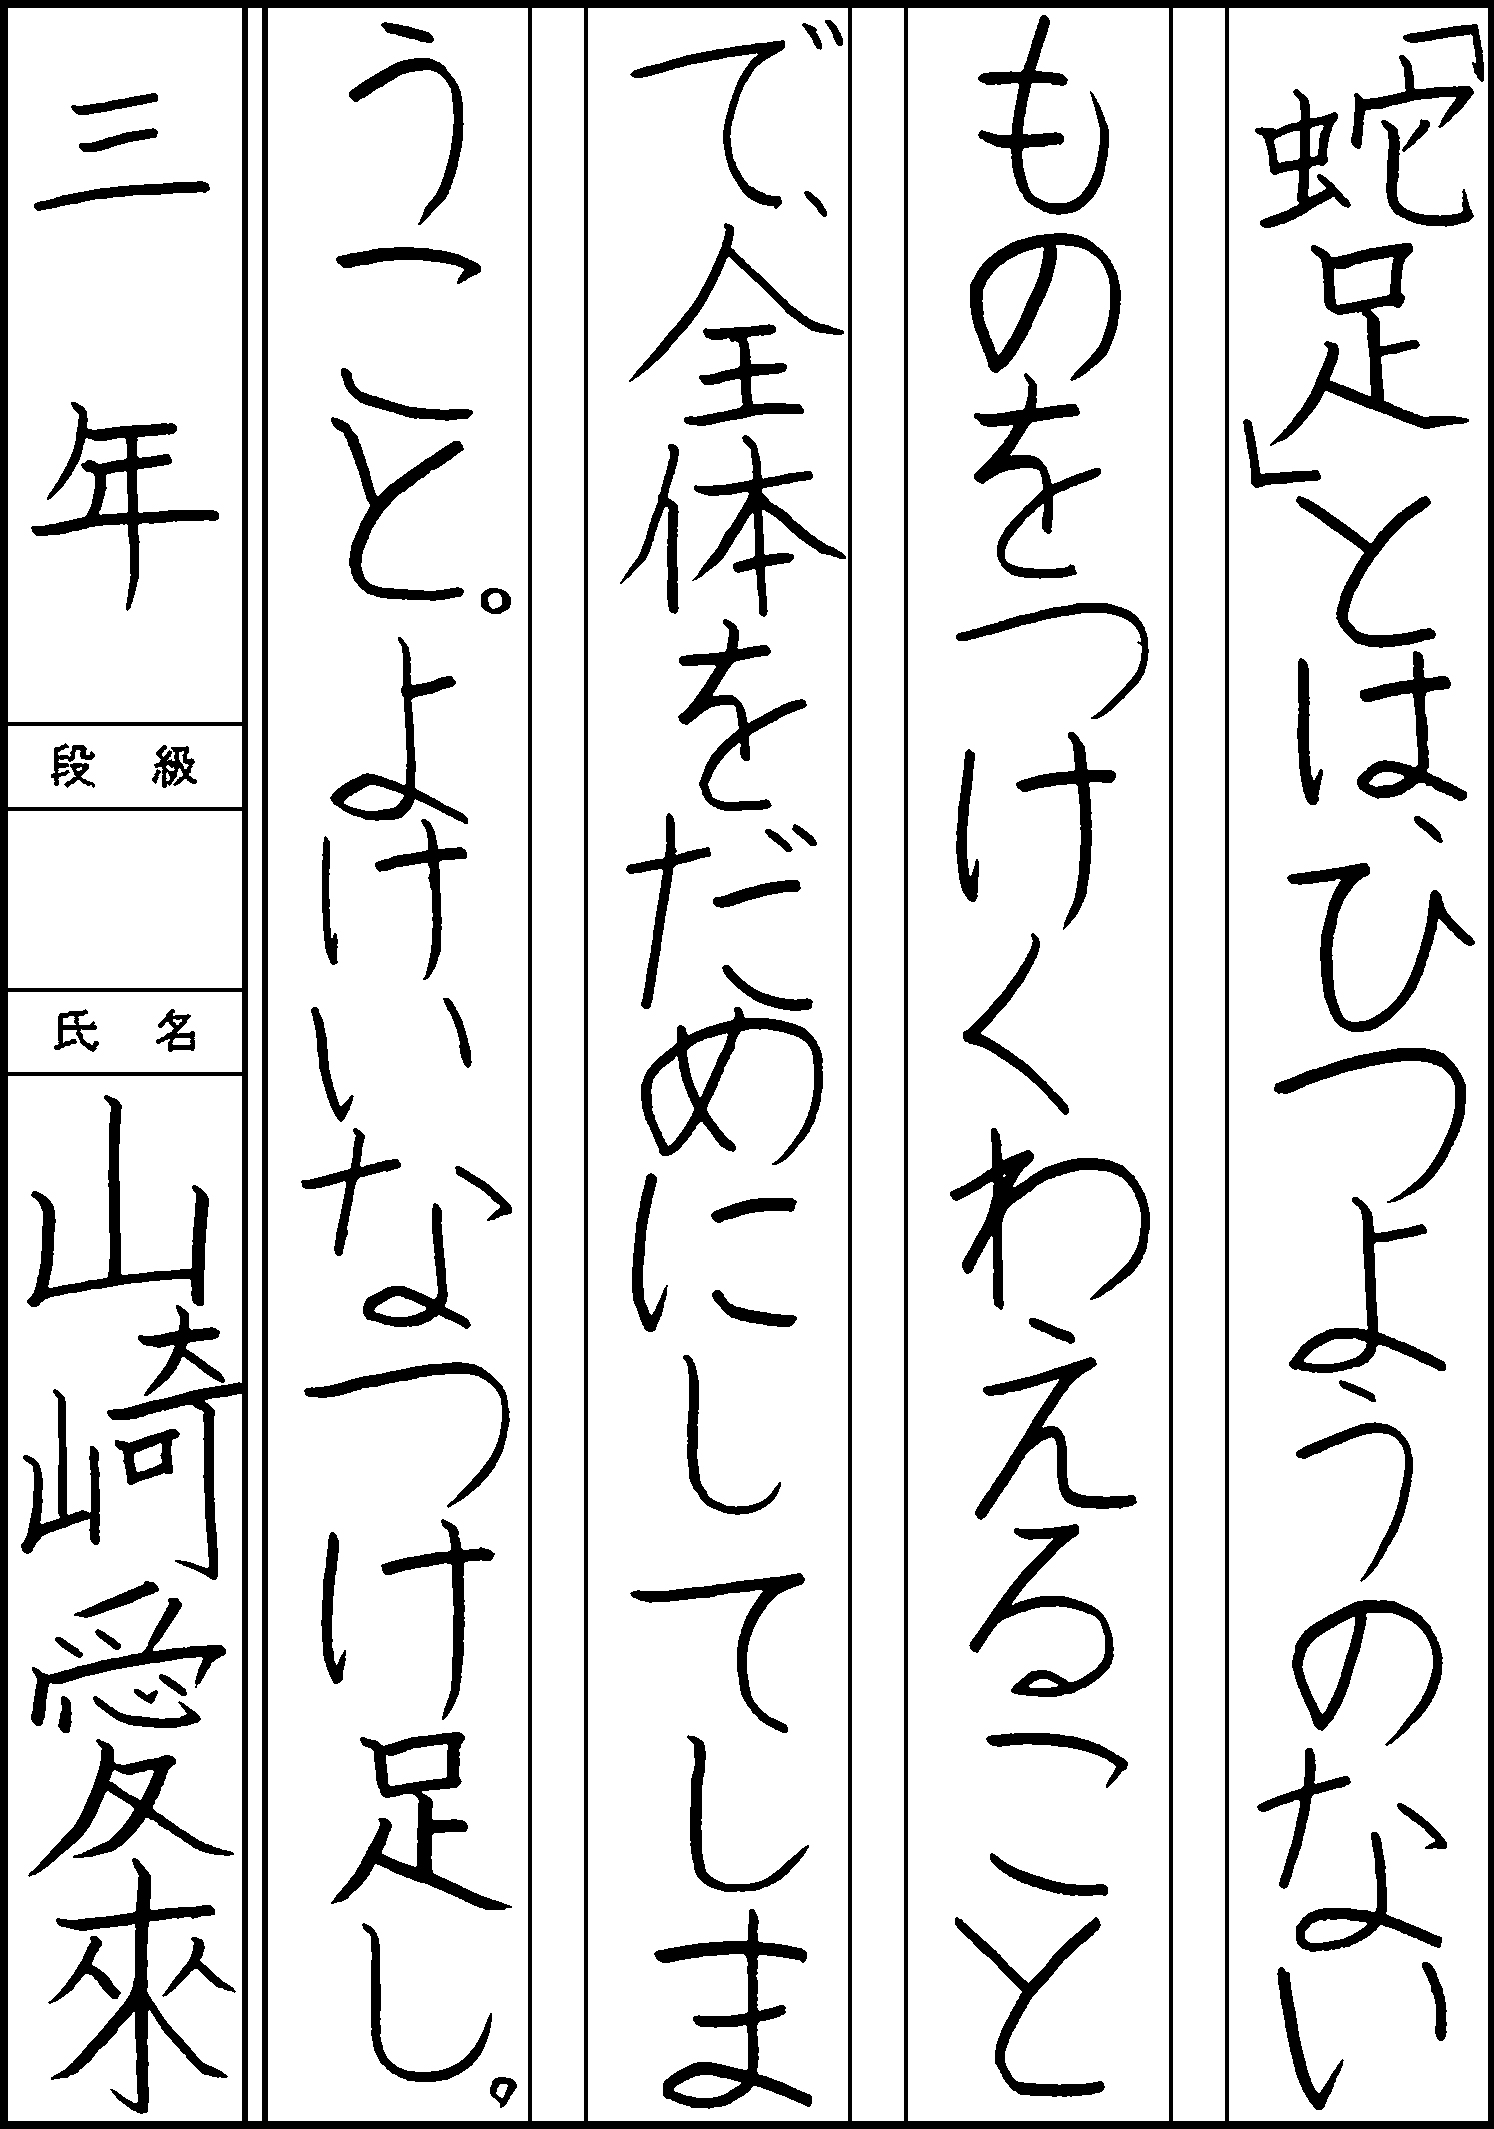 「蛇足」とは、ひつようのない
ものをつけくわえること
で、全体をだめにしてしま
うこと。よけいなつけ足し。
三年
段級
氏名
山崎愛來